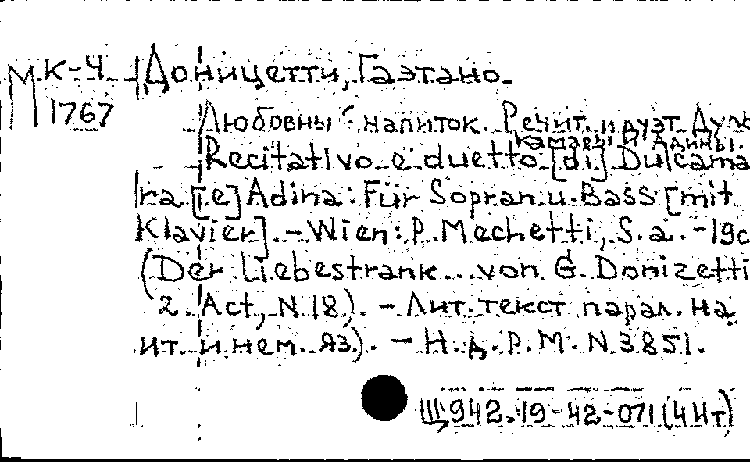 МК-4 Доницетти, Гаэтано.
1767
Любовный напиток. Речит. и дуэт Дуль
камары и Адины.
Recitativo e duetto [di] Dulcama
ra [e] Adina: Für Sopran u. Bass [mit
Klavier]. - Wien: P. Mechetti, S. a. - 19с
(Der Liebestrank... von G. Donizetti
2. Act, N 18). - Лит. текст парал. на
ит. и нем. яз). - Н. д. P. M. N 3851.
Щ942.19-42-071(4Ит)